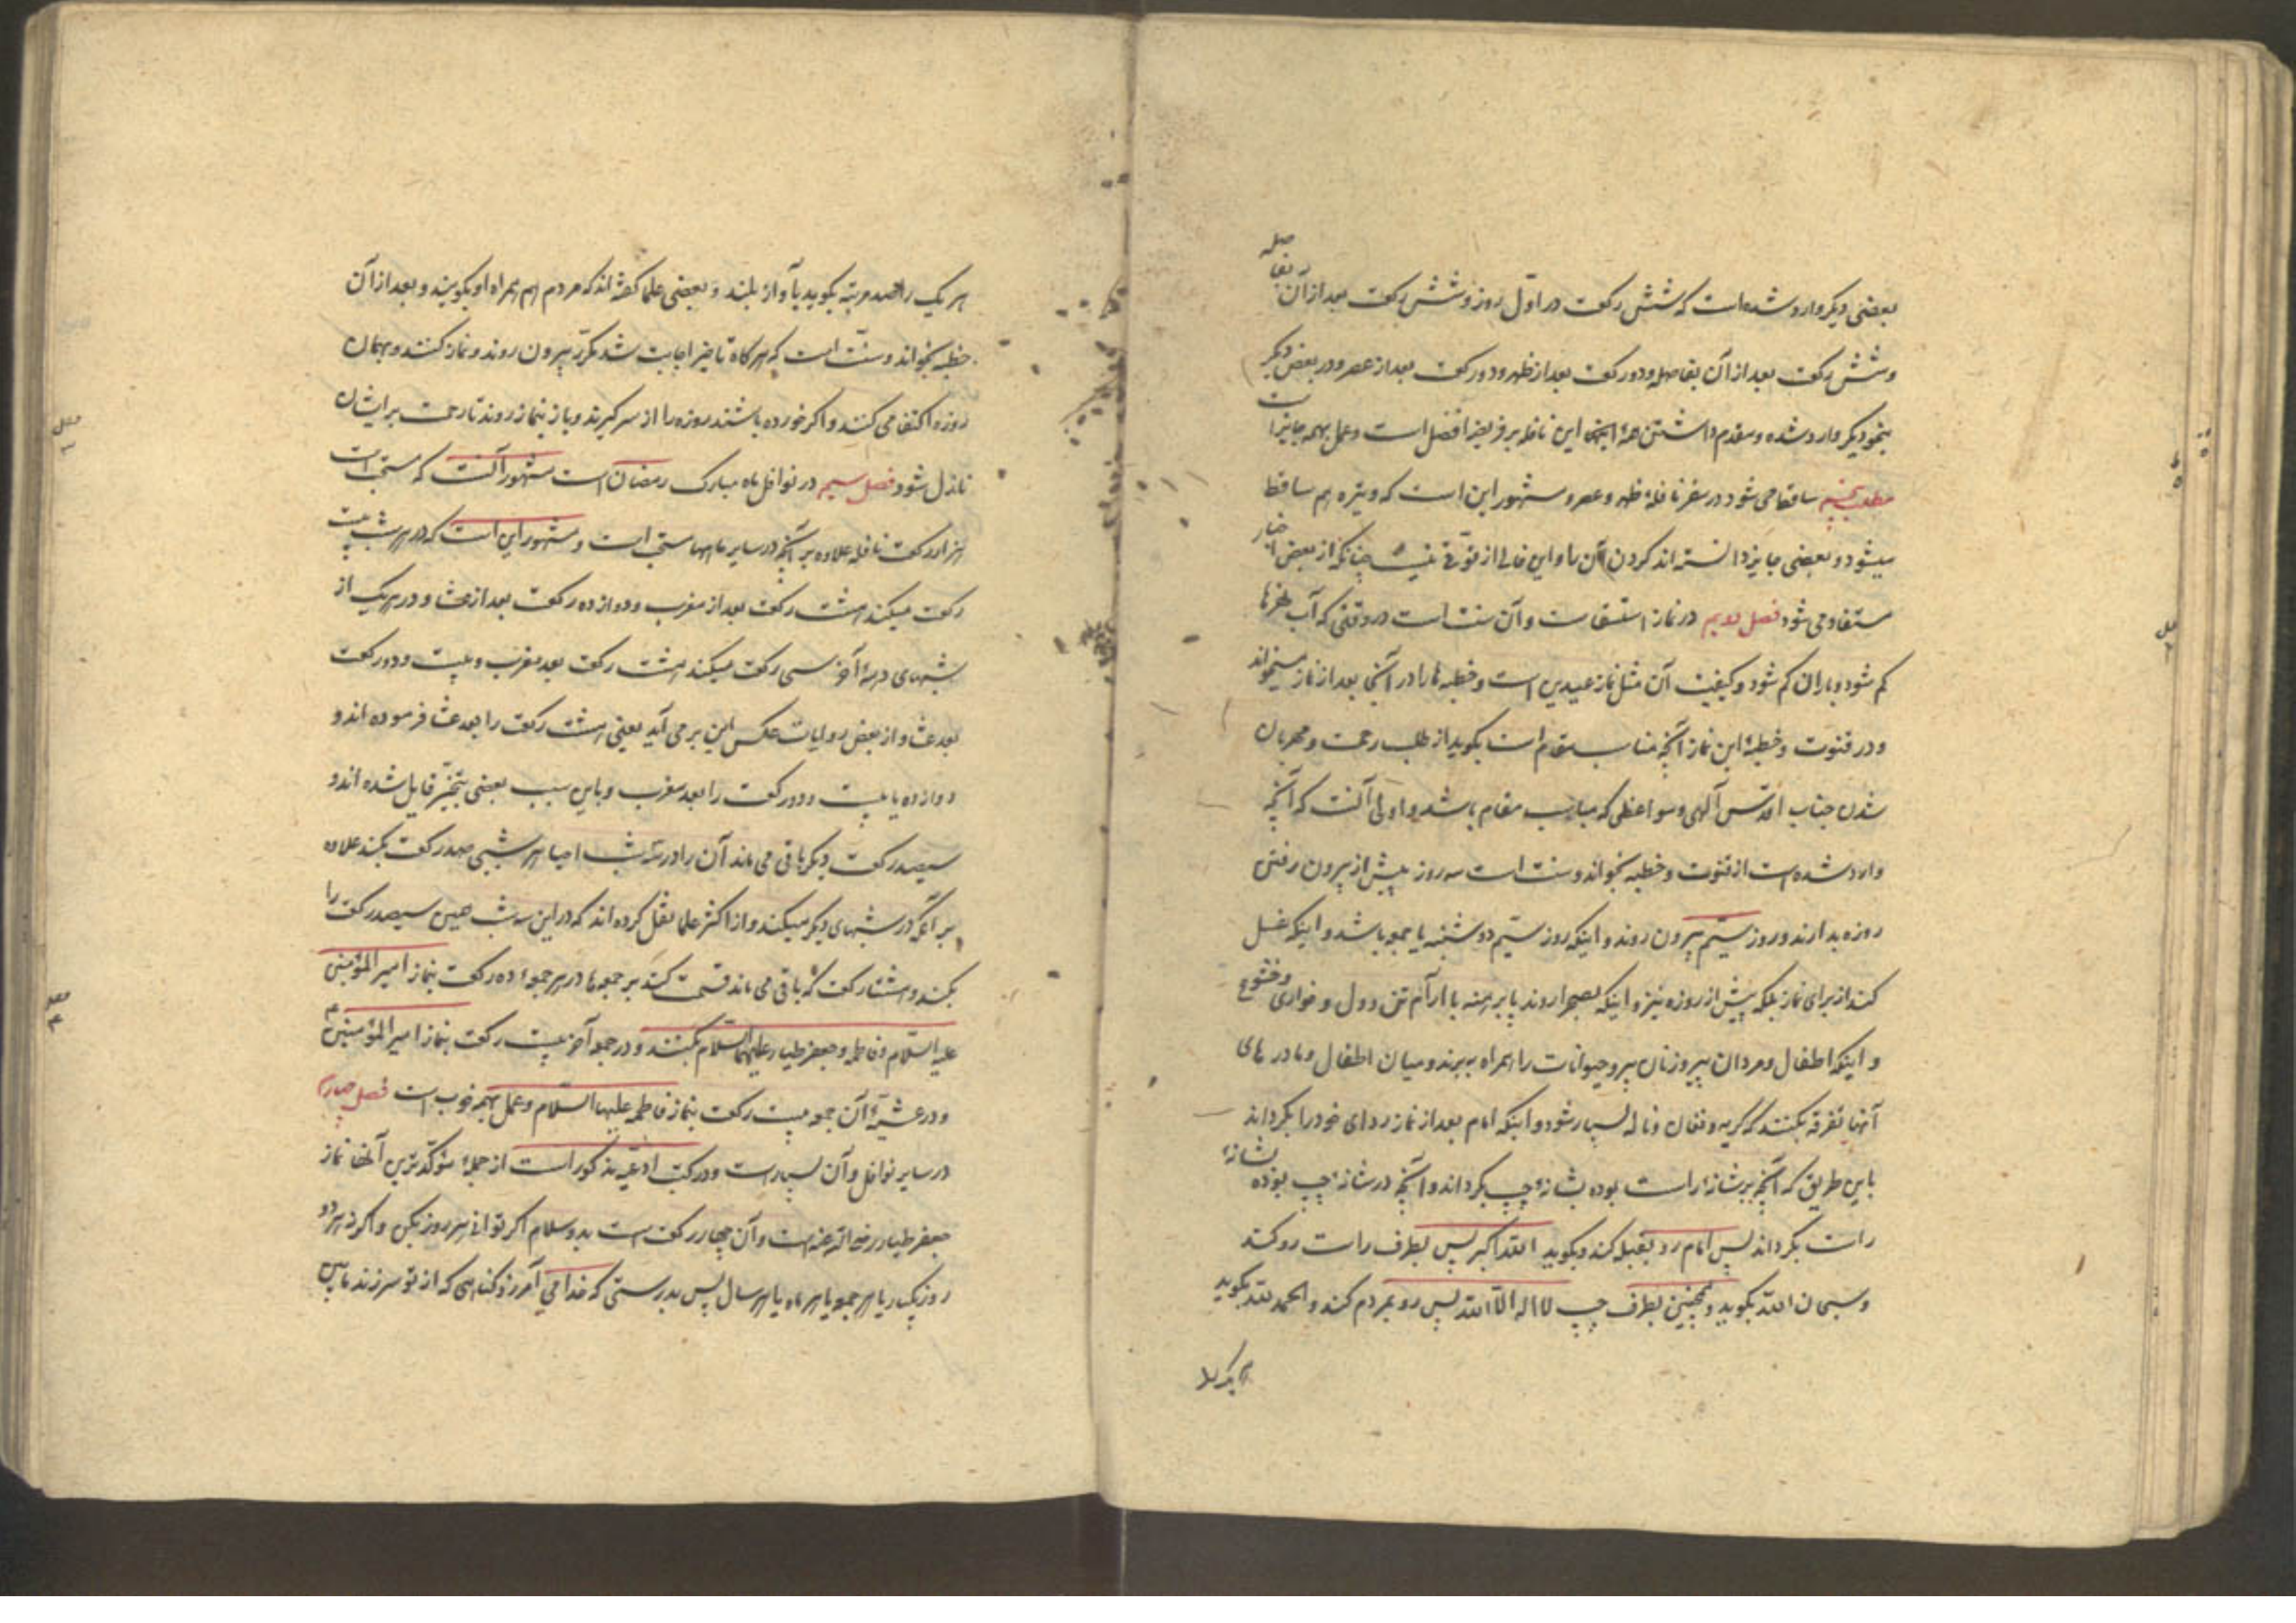 بعضی دیگر وارد شده است که شش رکعت در اوّل روز و شش رکعت بعد از آن بفاصله
و شش رکعت بعد از آن بفاصله و دو رکعت بعد از ظهر و دو رکعت بعد از عصر و در بعض دیگر
بنحو دیگر وارد شده و مقدم داشتن همهٔ اینها این نافله بر فریضه افضل است و عمل بهمه جایز است
مطلب پنجم ساقط می شود در سفر نافلهٔ ظهر و عصر و مشهور این است که وتیره هم ساقط
میشود و بعضی جایز دانسته اند کردن آن را و این خالی از قوّتی نیست چنانکه از بعض اخبار
مستفاد می شود فصل دویم در نماز استسقاست و آن سنت است در وقتی که آب نهرها
کم شود و باران کم شود و کیفیت آن مثل نماز عیدین است و خطبه ها را در آنجا بعد از نماز میخواند
و در قنوت و خطبهٔ این نماز آنچه مناسب مقام است بگوید از طلب رحمت و مهربان
شدن جناب اقدّس آلهی و مواعظی که مناسب مقام باشد و اولی آنست که آنچه
وارد شده است از قنوت و خطبه بخواند و سنت است سه روز پیش از بیرون رفتن
روزه بدارند و روز سیّم بیرون روند و اینکه روز سیّم دوشنبه یا جمعه باشد و اینکه غسل
کنند از برای نماز بلکه پیش از روزه نیز و اینکه بصحرا روند پا برهنه با آرام تن و دل و خواری و خشوع
و اینکه اطفال و مردان پیر و زنان پیر و حیوانات را همراه ببرند و میان اطفال و مادر های
آنها تفرقه بکنند که گریه و فغان و ناله بسیار شود و اینکه امام بعد از نماز ردای خود را بگرداند
باین طریق که آنچه بر شانهٔ راست بوده بشانهٔ چپ بگرداند و آنچه در شانهٔ چپ بوده بشانهٔ
راست بگرداند پس امام رو بقبله کند و بگوید الله اکبر پس بطرف راست رو کند
و سبحان الله بگوید و همچنین بطرف چپ لا اله الّا الله پس رو بمردم کند و الحمد لله بگوید
هر یک را
هر یک را صد مرتبه بگوید بآواز بلند و بعضی علما گفته اند که مردم هم همراه او بگویند و بعد از آن
خطبه بخواند و سنّت است که هر گاه تاخیر اجابت شد مکرّر بیرون روند و نماز کنند و بهمان
روزه اکتفا می کنند و اگر خورده باشند روزه را از سر گیرند و باز بنماز روند تا رحمت بر ایشان
نازل شود فصل سیم در نوافل ماه مبارک رمضان است مشهور آنست که مستحب است
هزار رکعت نافله علاوه بر آنچه در سایر ماهها مستحب است و مشهور این است که در هر شب بیست
رکعت میکند هشت رکعت بعد از مغرب و دوازده رکعت بعد از عشا و در هر یک از
شبهای دههٔ آخر سی رکعت میکند هشت رکعت بعد مغرب و بیست و دو رکعت
بعد عشا و از بعض روایات عکس این بر می آید یعنی هشت رکعت را بعد عشا فرموده اند و
دوازده یا بیست و دو رکعت را بعد مغرب و باین سبب بعضی بتخیّر قایل شده اند و
سیصد رکعت دیگر باقی می ماند آن را در سه شب احیا هر شبی صد رکعت بکند علاوه
بر آنکه در شبهای دیگر میکند و از اکثر علما نقل کرده اند که در این سه شب همین سیصد رکعت را
بکند و هشتاد رکعت که باقی می ماند قسمت کند بر جمعها در هر جمعه ده رکعت بنماز امیر المؤمنین
علیه السّلام و فاطمه و جعفر طیار علیهما السّلام بکند و در جمعه آخر بیست رکعت بنماز امیر المؤمنین ع
و در عشیّهٔ آن جمعه بیست رکعت بنماز فاطمه علیها السّلام و عمل بهمه خوب است فصل چهارم
در سایر نوافل و آن بسیار است و در کتب ادعیّه مذکور است از جملهٔ مؤکّد ترین آنها نماز
جعفر طیار رضی الله عنه است و آن چهار رکعت است بدو سلام اگر توانی هر روز بکن و اگر نه هر دو
روز یکبار یا هر جمعه یا هر ماه یا هر سال پس بدرستی که خدا می آمرزد گناهی که از تو سر زند مابین